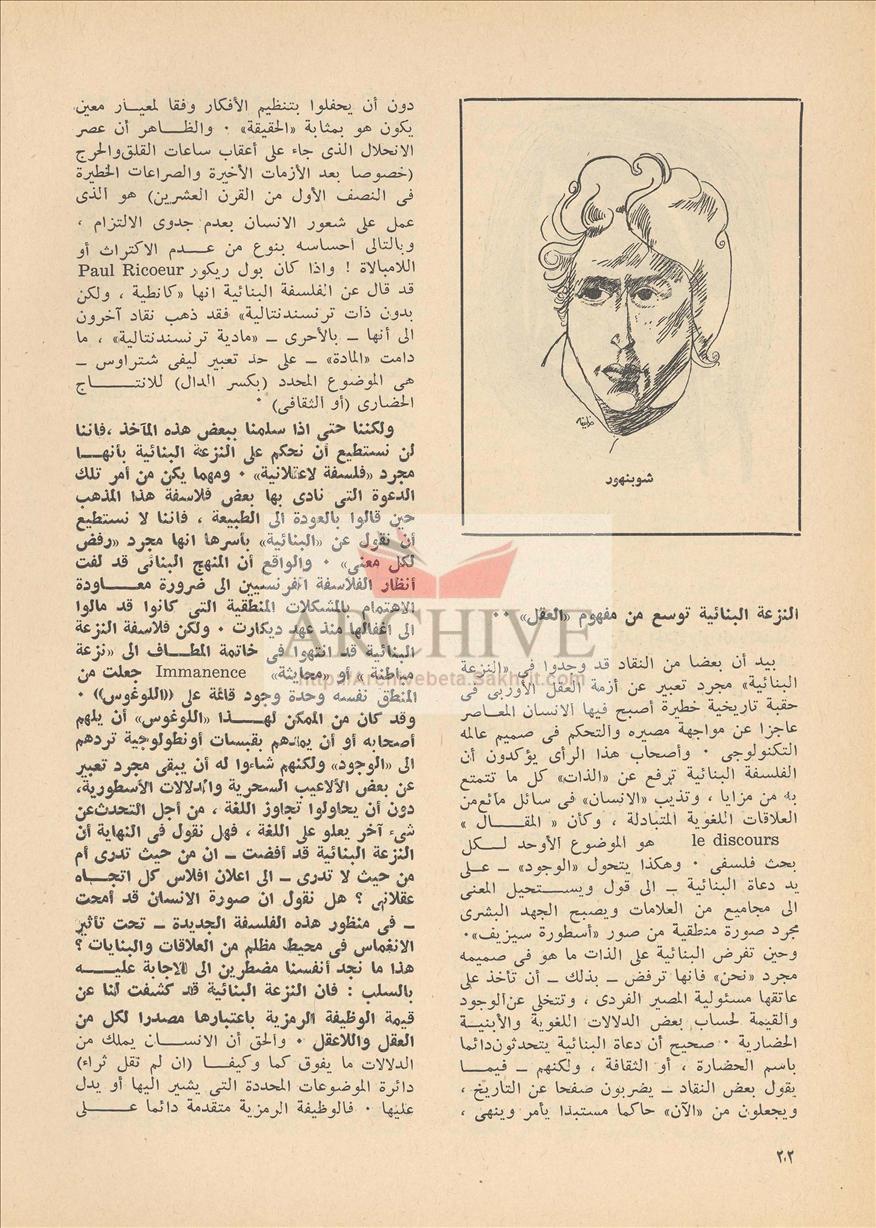 شوبنهور
النزعة البنائية توسع من مفهوم «العقل» ٠٠
بيد أن بعضا من النقاد قد وجدوا فى «النزعة
البنائية» مجرد تعبير عن أزمة العقل الأوربى فى
حقبة تاريخية خطيرة أصبح فيها الانسان المعاصر
عاجزا عن مواجهة مصيره والتحكم فى صميم عالمه
التكنولوجى ٠ وأصحاب هذا الرأى يؤكدون أن
الفلسفة البنائية ترفع عن «الذات» كل ما تتمتع
به من مزايا ، وتذيب «الانسان» فى سائل مائع من
العلاقات اللغوية المتبادلة ، وكأن « المقــال »
le discours هو الموضوع الأوحد لــكل
بحث فلسفى ٠ وهكذا يتحول «الوجود» ــ عــلى
يد دعاة البنائية ــ الى قول ويســتحيل المعنى
الى مجاميع من العلامات ويصبح الجهد البشرى
مجرد صورة منطقية من صور «أسطورة سيزيف»٠
وحين تفرض البنائية على الذات ما هو فى صميمه
مجرد «نحن» فانها ترفض ــ بذلك ــ أن تأخذ على
عاتقها مسئولية المصير الفردى ، وتتخلى عن الوجود
والقيمة لحساب بعض الدلالات اللغوية والأبنيــة
الحضارية ٠ صحيح أن دعاة البنائية يتحدثون دائما
باسم الحضارة ، أو الثقافة ، ولكنهم ــ فيمــا
يقول بعض النقاد ــ يضربون صفحا عن التاريخ ،
ويجعلون من «الآن» حاكما مستبدا يأمر وينهى ،
دون أن يحفلوا بتنظيم الأفكار وفقا لمعيــار معين
يكون هو بمثابة «الحقيقة» ٠ والظــاهر أن عصر
الانحلال الذى جاء على أعقاب ساعات القلق والحرج
(خصوصا بعد الأزمات الأخيرة والصراعات الخطيرة
فى النصف الأول من القرن العشرين) هو الذى
عمل على شعور الانسان بعدم جدوى الالتزام ،
وبالتالى احساسه بنوع من عــدم الاكتراث أو
اللامبالاة ! واذا كان بول ريكور Paul Ricoeur
قد قال عن الفلسفة البنائية انها «كانطية ، ولكن
بدون ذات ترنسندنتالية» فقد ذهب نقاد آخرون
الى أنها ــ بالأحرى ــ «مادية ترنسندنتالية» ، ما
دامت «المادة» ــ على حد تعبير ليفى شتراوس ــ
هى الموضوع المحدد (بكسر الدال) للانتــــاج
الحضارى (أو الثقافى) ٠
ولكننا حتى اذا سلمنا ببعض هذه المآخذ ،فاننا
لن نستطيع أن نحكم على النزعة البنائية بأنهــا
مجرد «فلسفة لاعقلانية» ٠ ومهما يكن من أمر تلك
الدعوة التى نادى بها بعض فلاسفة هذا المذهب
حين قالوا بالعودة الى الطبيعة ، فاننا لا نستطيع
أن نقول عن «البنائية» بأسرها انها مجرد «رفض
لكل معنى» ٠ والواقع أن المنهج البنائى قد لفت
أنظار الفلاسفة الفرنسيين الى ضرورة معــاودة
الاهتمام بالمشكلات المنطقية التى كانوا قد مالوا
الى اغفالها منذ عهد ديكارت ٠ ولكن فلاسفة النزعة
البنائية قد انتهوا فى خاتمة المطــاف الى «نزعة
مباطنة » أو «محايثة» Immanence جعلت من
المنطق نفسه وحدة وجود قائمة على «اللوغوس» ٠
وقد كان من الممكن لهــذا «اللوغوس» أن يلهم
أصحابه أو أن يمدهم بقبسات أونطولوجية تردهم
الى «الوجود» ولكنهم شاءوا له أن يبقى مجرد تعبير
عن بعض الألاعيب السحرية والدلالات الأسطورية،
دون أن يحاولوا تجاوز اللغة ، من أجل التحدث عن
شىء آخر يعلو على اللغة ، فهل نقول فى النهاية أن
النزعة البنائية قد أفضت ــ ان من حيث تدرى أم
من حيث لا تدرى ــ الى اعلان افلاس كل اتجــاه
عقلانى ؟ هل نقول ان صورة الانسان قد أمحت
ــ فى منظور هذه الفلسفة الجديدة ــ تحت تأثير
الانغماس فى محيط مظلم من العلاقات والبنايات ؟
هذا ما نجد أنفسنا مضطرين الى الاجابة عليــه
بالسلب : فان النزعة البنائية قد كشفت لنا عن
قيمة الوظيفة الرمزية باعتبارها مصدرا لكل من
العقل واللاعقل ٠ والحق أن الانســان يملك من
الدلالات ما يفوق كما وكيفــا (ان لم تقل ثراء)
دائرة الموضوعات المحددة التى يشير اليها أو يدل
عليها ٠ فالوظيفة الرمزية متقدمة دائما عــــلى
٢٠٢
ARCHIVE
http://Archivebeta.Sakhrit.com